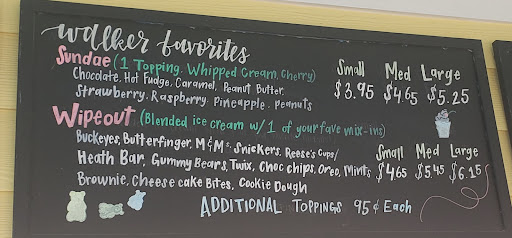 walker favorites
Sundae (1 Topping, Whipped Cream, Cherry) Small Med Large
Chocolate, Hot Fudge, Caramel, Peanut Butter, $3.95 $4.65 $5.25
Strawberry, Raspberry, Pineapple, Peanuts
Wipeout (Blended ice cream w/ 1 of your fave mix-ins)
Buckeyes, Butterfinger, M&M's, Snickers, Reese's Cups/ Small Med Large
Heath Bar, Gummy Bears, Twix, Choc chips, Oreo, Mints $4.65 $5.45 $6.15
Brownie, Cheesecake Bites, Cookie Dough
ADDITIONAL TOPPINGS 95¢ Each